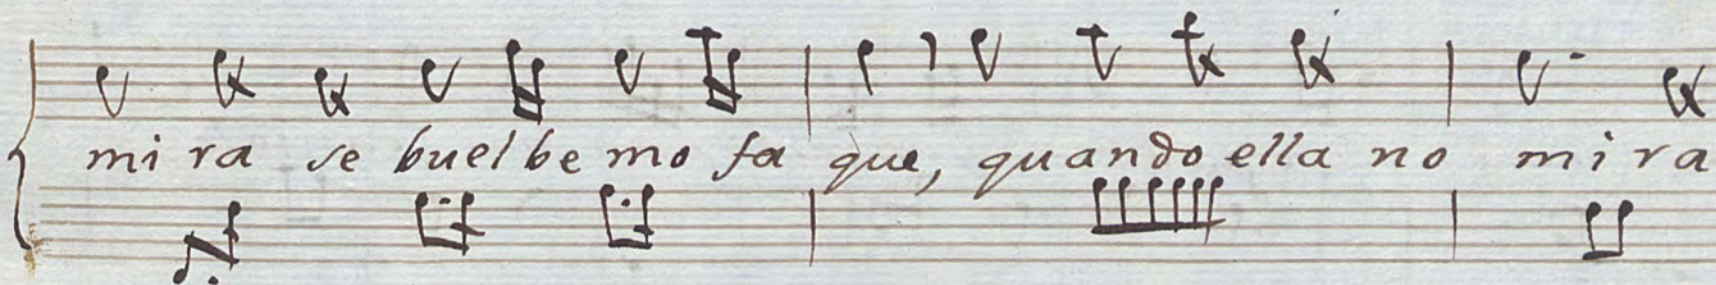 mi ra se buel be mo fa que, quando ella no mi ra